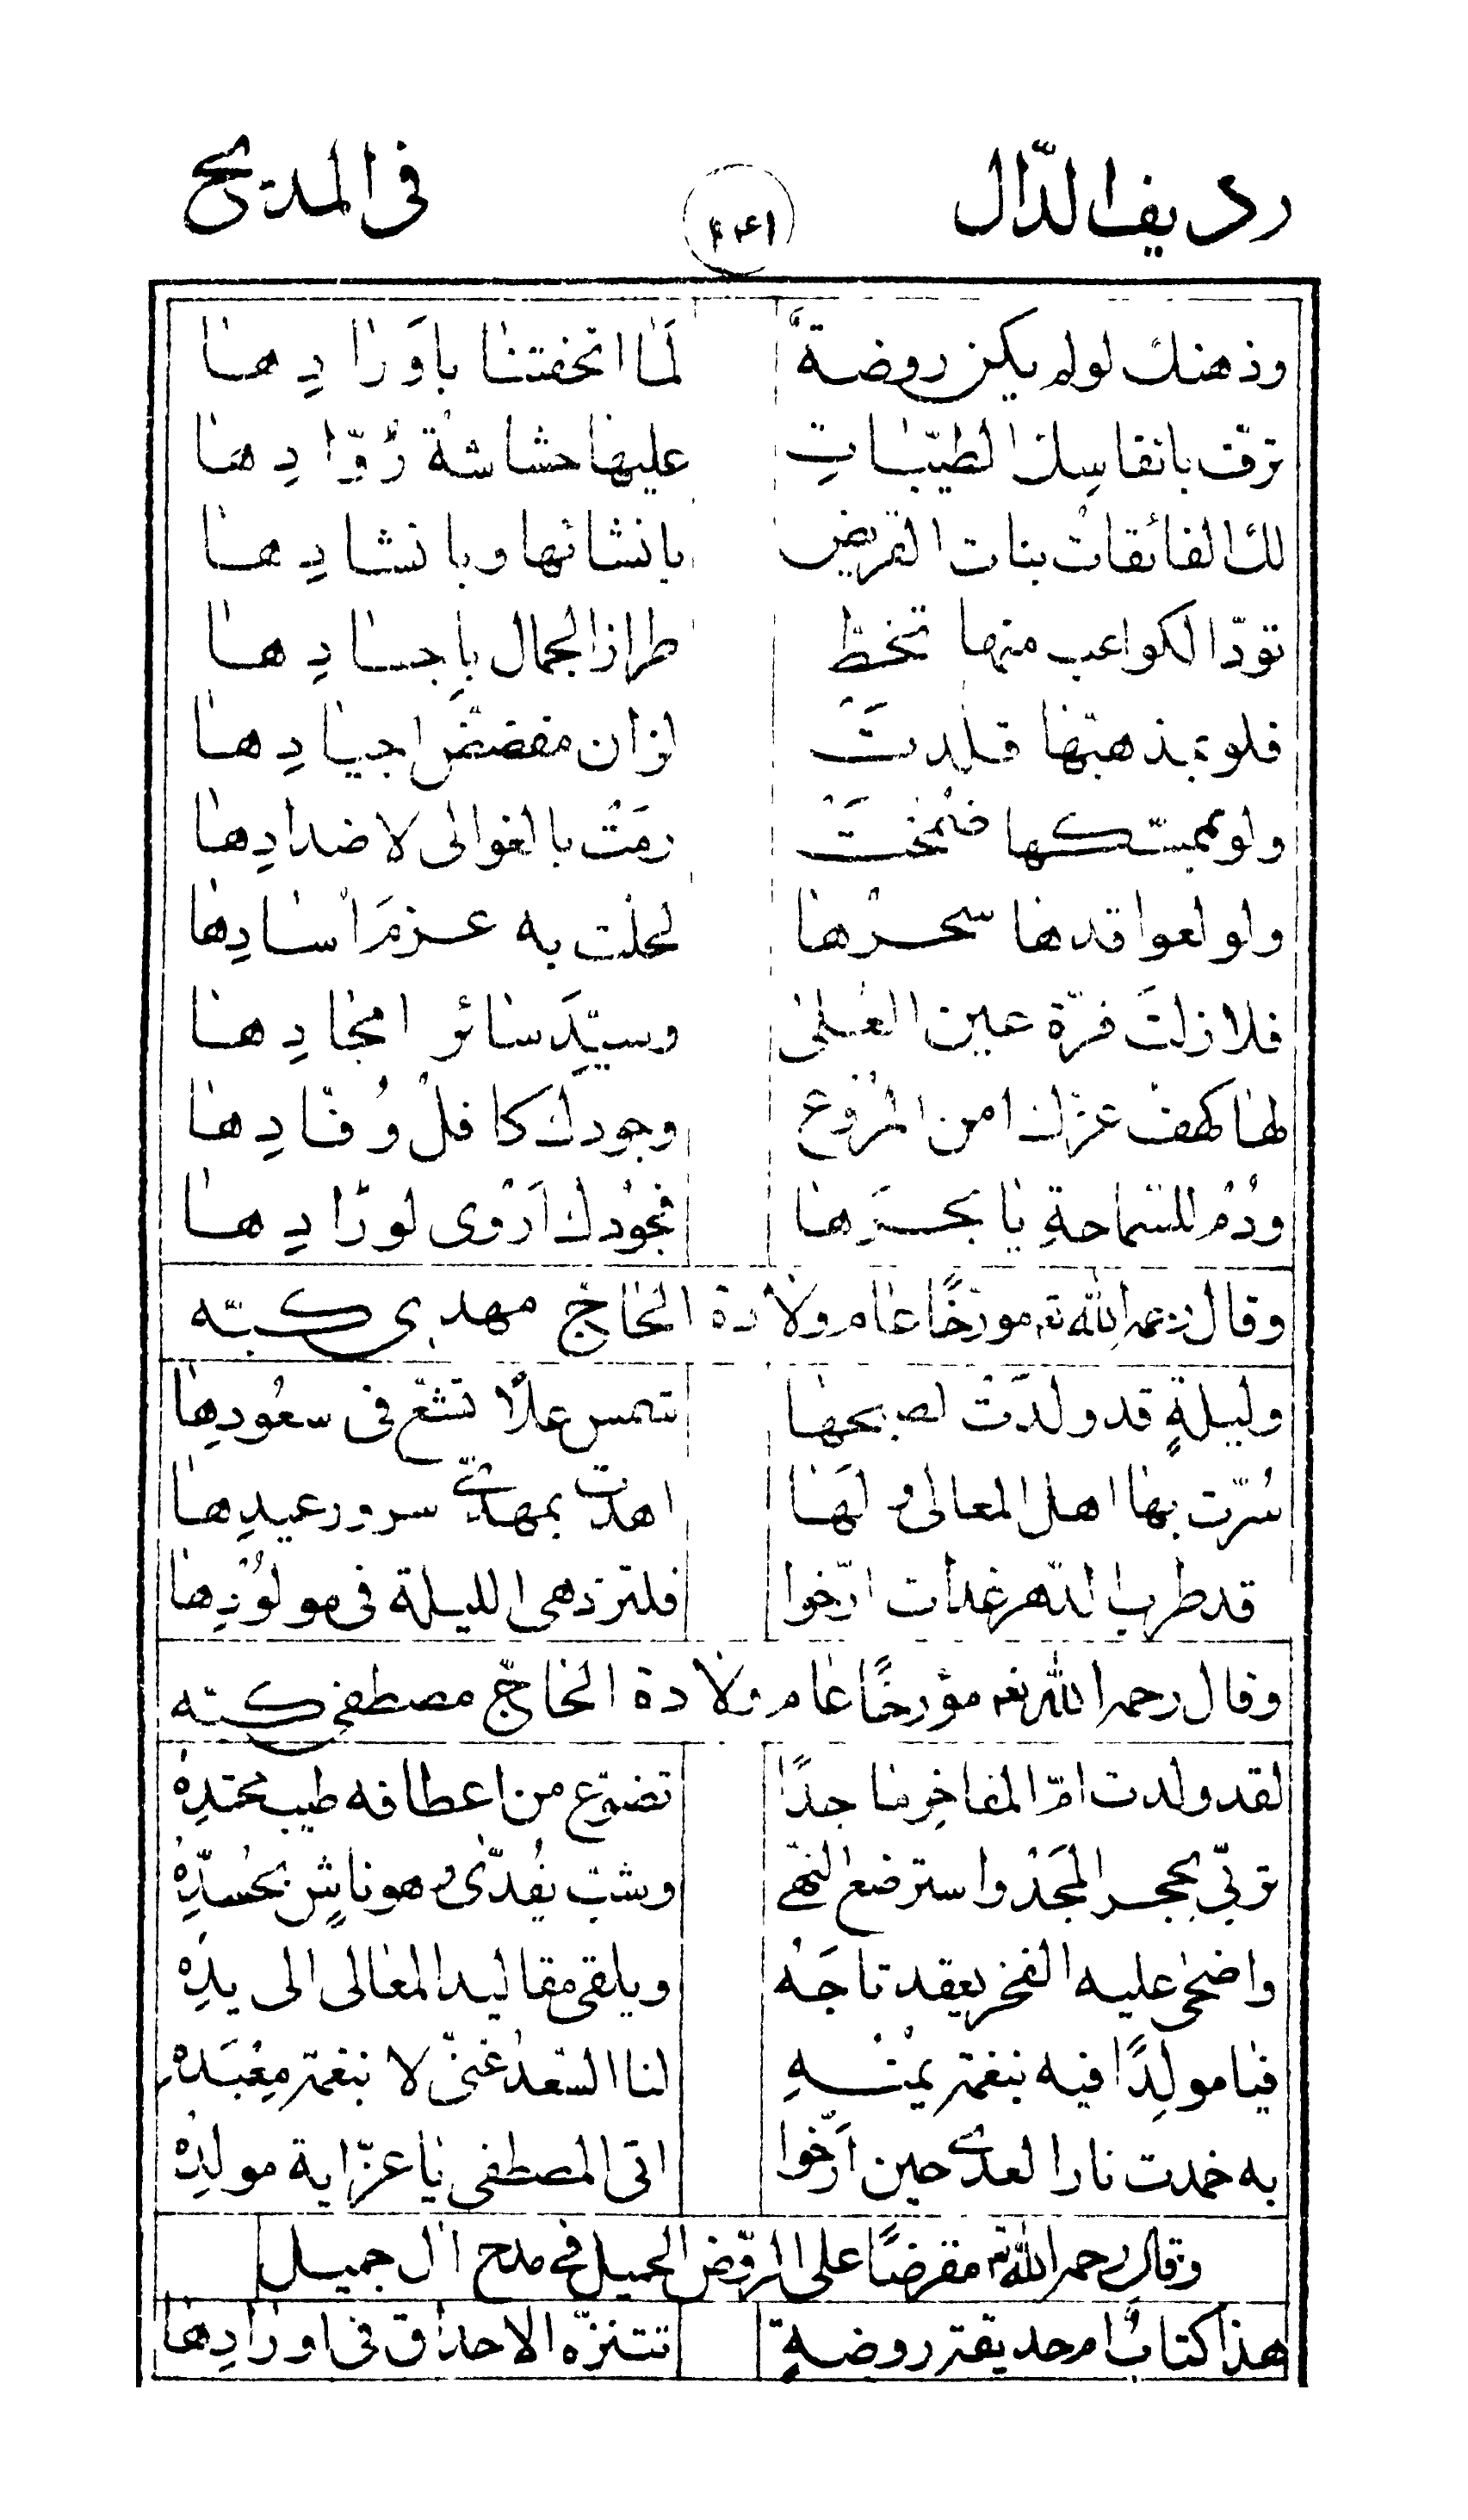 رديف الدّال ٢٤١ فى المديح
وذهنك لو لم يكن روضةً لَما اتحفتنا باَورادِها
ترقّت بانفاسِك الطيّبات عليها حشاشة رُوّادِها
لك الفائقات بنات القريض بانشائها وبانشادِها
تودّ الكواعب منها تخطّ طراز الجمال باِجسادِها
فلو بمذهبّها قلدتَ لزان مفضّض اجيادِها
ولو بممسّكها ضمّختَ رمَتْ بالغوالى لاضدادِها
ولو لعواقدها سحرُها لحلّت به عزمَ اسادِها
فلا زلتَ قرّة عين العُلىٰ وسيّدَ سائر امجادِها
لها كهفُ عزّك امن المرُوع وجودك كافلُ وُفّادِها
ودُمْ للسّماحةِ يا بحرَها فجُودك اَرْوى لورّادِها
وقال رحمه الله تع مورّخًا عام ولادة الحاج مهدي كبّه
وليلةٍ قد ولدَتْ لصبحها شمس علاً تشعّ فى سعُودِها
سُرّت بها اهل المعالى ولهَا اهدت بمهدىّ سرور عيدِها
قد طرب الدّهر غداة ارّخوا فلتزدهى الليلة فى مولوُدِها
وقال رحمه الله تع مؤرخًا عام ولادة الحاجّ مصطفى كبّه
لقد ولدت امّ المفاخر ماجدًا تضوّع من اعطافه طيب محتدِهْ
تربّي بحجر المجَدْ واسترضع النهّى وشبّ يُفدّى وهو ناشٍ بحُسدِّهْ
واضحى عليه الفخر يعقد تاجَهُ ويلقى مقاليد المعالى الى يدِهْ
فيا مولِدًا فيه بنغمة يمُنهِ لنا السّعد غنىّ لا بنغمة مِعْبَدهْ
به خمدت نار العدى حين اَرّخوا اتى المصطفى يا عزّ اية مولدِهْ
وقال رحمه الله تع مقرضًا على الروّض الجميل فى مدح ال جميل
هذا كتابٌ ام حديقة روضةٍ تتنزّه الاحداق فى اورادِها